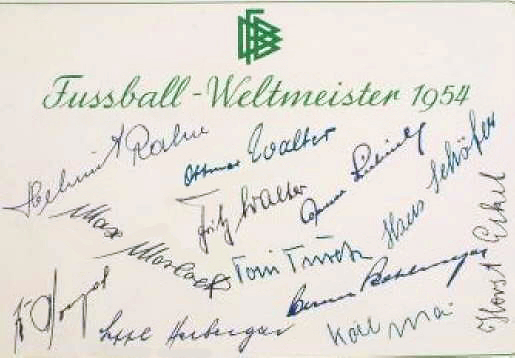 DFB
Fussball-Weltmeister 1954
Helmut Rahn
Ottmar Walter
Fritz Walter
Werner Liebrich
Hans Schäfer
Max Morlock
Toni Turek
Horst Eckel
Werner Kohlmeyer
Sepp Herberger
Karl Mai